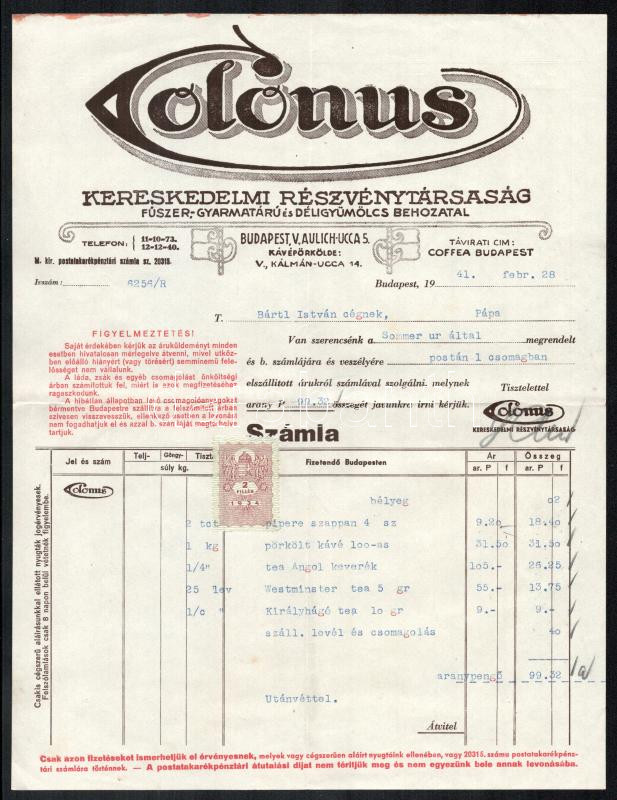 Colonus
KERESKEDELMI RÉSZVÉNYTÁRSASÁG
FŰSZER,- GYARMATÁRÚ és DÉLIGYÜMÖLCS BEHOZATAL
TELEFON: 11-10-73.
12-12-40.
M. kir. postatakarékpénztári számla sz. 20315.
BUDAPEST, V, AULICH-UCCA 5.
KÁVÉPÖRKÖLDE:
V., KÁLMÁN-UCCA 14.
TÁVIRATI CIM:
COFFEA BUDAPEST
Ivszám: 6256/R
Budapest, 19 41. febr. 28
T. Bártl István cégnek, Pápa
Van szerencsénk a Sommer ur által megrendelt
és b. számlájára és veszélyére postán 1 csomagban
elszállított árukról számlával szolgálni. melynek
arany P 99.32 összegét javunkra irni kérjük.
Tisztelettel
Colonus
KERESKEDELMI RÉSZVÉNYTÁRSASÁG
FIGYELMEZTETÉS!
Saját érdekében kérjük az áruküldeményt minden
esetben hivatalosan mérlegelve átvenni, mivel utköz-
ben előálló hiányért (vagy törésért) semminemű fele-
lősséget nem vállalunk.
A láda, zsák és egyéb csomagolást önköltségi
árban számítottuk fel, miért is azok megfizetéséhez
ragaszkodunk.
A hibátlan állapotban levő csomagolóanyagokat
bérmentve Budapestre szállítva a felszámított árban
szivesen visszavesszük, ellenkező esetben a levonást
nem fogadhatjuk el és azzal b. számláját megterhelve
tartjuk.
Számla
Jel és szám
Telj-
Göngy-
Tiszt
súly kg.
Fizetendő Budapesten
Ár
ar. P f
Összeg
ar. P f
2
FILLÉR
1934
Colonus
bélyeg 02
2 tct pipere szappan 4 sz 9.20 18.40
1 kg pörkölt kávé 100-as 31.50 31.50
1/4" tea Angol keverék 105.- 26.25
25 lev Westminster tea 5 gr 55.- 13.75
1/c " Királyhágó tea 10 gr 9.- 9.-
száll. levél és csomagolás 40
aranypengő 99.32
Utánvéttel.
Átvitel
Csakis cégszerű aláírásunkkal ellátott nyugták jogérvényesek.
Felszólamlások csak 8 napon belül vétetnek figyelembe.
Csak azon fizetéseket ismerhetjük el érvényesnek, melyek vagy cégszerűen aláirt nyugtáink ellenében, vagy 20315. számu postatakarékpénz-
tári számlára történnek. — A postatakarékpénztári átutalási díjat nem térítjük meg és nem egyezünk bele annak levonásába.